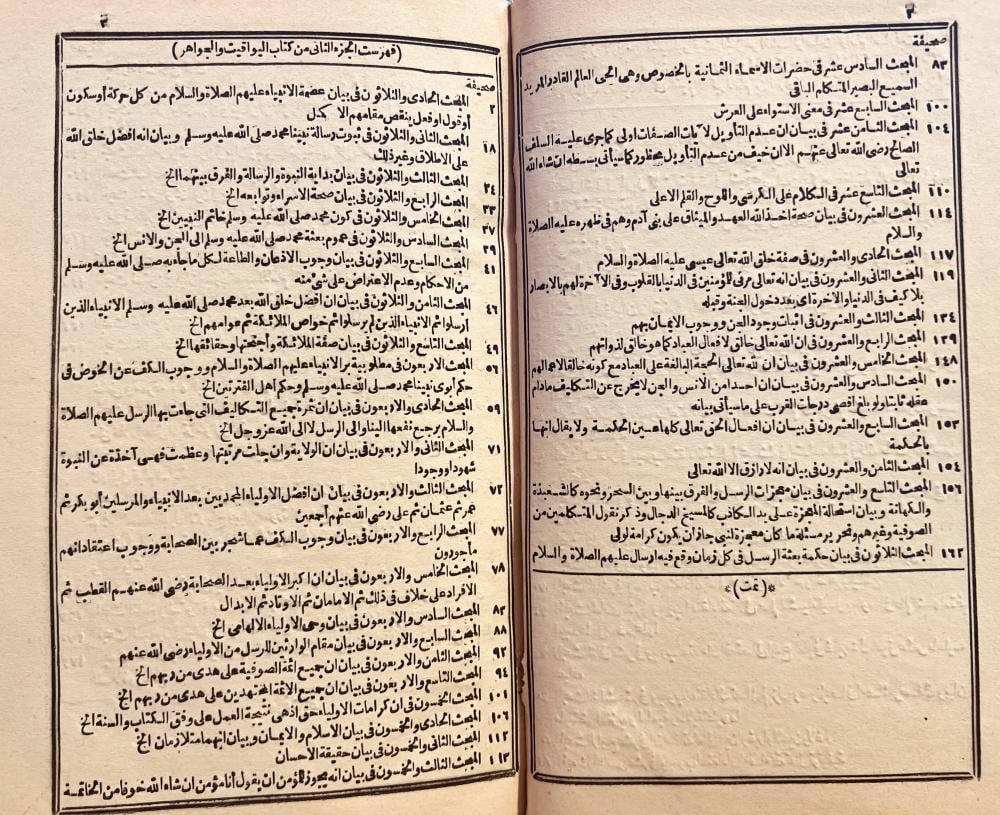 ٣
صحيفة
٨٣ المبحث السادس عشر في حضرات الاسماء الثمانية بالخصوص وهي الحي العالم القادر المريد
السميع البصير المتكلم الباقي
١٠٠ المبحث السابع عشر في معنى الاستواء على العرش
١٠٤ المبحث الثامن عشر في بيان ان عدم التأويل لآيات الصفات اولى كما جرى عليه السلف
الصالح رضي الله تعالى عنهم الا ان خيف من عدم التأويل محظور كما سيأتي بسطه ان شاء الله
تعالى
١١٠ المبحث التاسع عشر في الكلام على الكرسي واللوح والقلم الاعلى
١١٤ المبحث العشرون في بيان صحة اخذ الله العهد والميثاق على بني آدم وهم في ظهره عليه الصلاة
والسلام
١١٧ المبحث الحادي والعشرون في صفة خلق الله تعالى عيسى عليه الصلاة والسلام
١١٩ المبحث الثاني والعشرون في بيان انه تعالى مرئي للمؤمنين في الدنيا بالقلوب وفي الآخرة لهم بالابصار
بلا كيف في الدنيا والآخرة اي بعد دخول الجنة وقبله
١٣٤ المبحث الثالث والعشرون في اثبات وجود الجن ووجوب الايمان بهم
١٣٩ المبحث الرابع والعشرون في ان الله تعالى خالق لافعال العباد كما هو خالق لذواتهم
١٤٨ المبحث الخامس والعشرون في بيان ان لله تعالى الحجة البالغة على العباد مع كونه خالقا لاعمالهم
١٥٠ المبحث السادس والعشرون في بيان ان احدا من الانس والجن لا يخرج عن التكليف مادام
عقله ثابتا ولو بلغ اقصى درجات القرب على ما سيأتي بيانه
١٥٣ المبحث السابع والعشرون في بيان ان افعال الحق تعالى كلها عين الحكمة ولا يقال انها
بالحكمة
١٥٤ المبحث الثامن والعشرون في بيان انه لا رازق الا الله تعالى
١٥٦ المبحث التاسع والعشرون في بيان معجزات الرسل والفرق بينها وبين السحر ونحوه كالشعبذة
والكهانة وبيان استحالة المعجزة على يد الكاذب كالمسيخ الدجال وذكر نقول المتكلمين من
الصوفية وغيرهم وتحرير مسئلة ما كان معجزة لنبي جاز أن يكون كرامة لولي
١٦٢ المبحث الثلاثون في بيان حكمة بعثة الرسل في كل زمان وقع فيه ارسال عليهم الصلاة والسلام
*(تمت)*
٢
(فهرست الجزء الثاني من كتاب اليواقيت والجواهر)
صحيفة
٢ المبحث الحادي والثلاثون في بيان عصمة الانبياء عليهم الصلاة والسلام من كل حركة أو سكون
أو قول أو فعل ينقص مقامهم الاكمل
١٨ المبحث الثاني والثلاثون في ثبوت رسالة نبينا محمد صلى الله عليه وسلم وبيان انه افضل خلق الله
على الاطلاق وغير ذلك
٢٤ المبحث الثالث والثلاثون في بيان بداية النبوة والرسالة والفرق بينهما الخ
٣٣ المبحث الرابع والثلاثون في بيان صحة الاسراء وتوابعه الخ
٣٧ المبحث الخامس والثلاثون في كون محمد صلى الله عليه وسلم خاتم النبيين الخ
٣٩ المبحث السادس والثلاثون في عموم بعثة محمد صلى الله عليه وسلم الى الجن والانس الخ
٤١ المبحث السابع والثلاثون في بيان وجوب الاذعان والطاعة لكل ما جاء به صلى الله عليه وسلم
من الاحكام وعدم الاعتراض على شيء منه
٤٦ المبحث الثامن والثلاثون في بيان ان افضل خلق الله بعد محمد صلى الله عليه وسلم الانبياء الذين
أرسلوا ثم الانبياء الذين لم يرسلوا ثم خواص الملائكة ثم عوامهم الخ
٤٩ المبحث التاسع والثلاثون في بيان صفة الملائكة وأجنحتها وحقائقها الخ
٥٦ المبحث الاربعون في مطلوبية بر الانبياء عليهم الصلاة والسلام ووجوب الكف عن الخوض في
حكم أبوي نبينا محمد صلى الله عليه وسلم وحكم أهل الفترتين الخ
٥٩ المبحث الحادي والاربعون في بيان ان ثمرة جميع التكاليف التي جاءت بها الرسل عليهم الصلاة
والسلام يرجع نفعها الينا والى الرسل لا الى الله عز وجل الخ
٧١ المبحث الثاني والاربعون في بيان ان الولاية وان جلت مرتبتها وعظمت فهي آخذة عن النبوة
شهودا ووجودا
٧٢ المبحث الثالث والاربعون في بيان ان افضل الاولياء المحمديين بعد الانبياء والمرسلين أبو بكر ثم
عمر ثم عثمان ثم علي رضي الله عنهم أجمعين
٧٧ المبحث الرابع والاربعون في بيان وجوب الكف عما شجر بين الصحابة ووجوب اعتقاد انهم
مأجورون
٧٨ المبحث الخامس والاربعون في بيان ان اكبر الاولياء بعد الصحابة رضي الله عنهم القطب ثم
الافراد على خلاف في ذلك ثم الامامان ثم الاوتاد ثم الابدال
٨٣ المبحث السادس والاربعون في بيان وحي الاولياء الالهامي الخ
٨٨ المبحث السابع والاربعون في بيان مقام الوارثين للرسل من الاولياء رضي الله عنهم
٩٢ المبحث الثامن والاربعون في بيان ان جميع ائمة الصوفية على هدى من ربهم الخ
٩٤ المبحث التاسع والاربعون في بيان ان جميع الائمة المجتهدين على هدى من ربهم الخ
١٠١ المبحث الخمسون في ان كرامات الاولياء حق اذ هي نتيجة العمل على وفق الكتاب والسنة الخ
١٠٦ المبحث الحادي والخمسون في بيان الاسلام والايمان وبيان انهما متلازمان الخ
١١٢ المبحث الثاني والخمسون في بيان حقيقة الاحسان
١١٣ المبحث الثالث والخمسون في بيان انه يجوز للمؤمن ان يقول أنا مؤمن ان شاء الله خوفا من الخاتمة